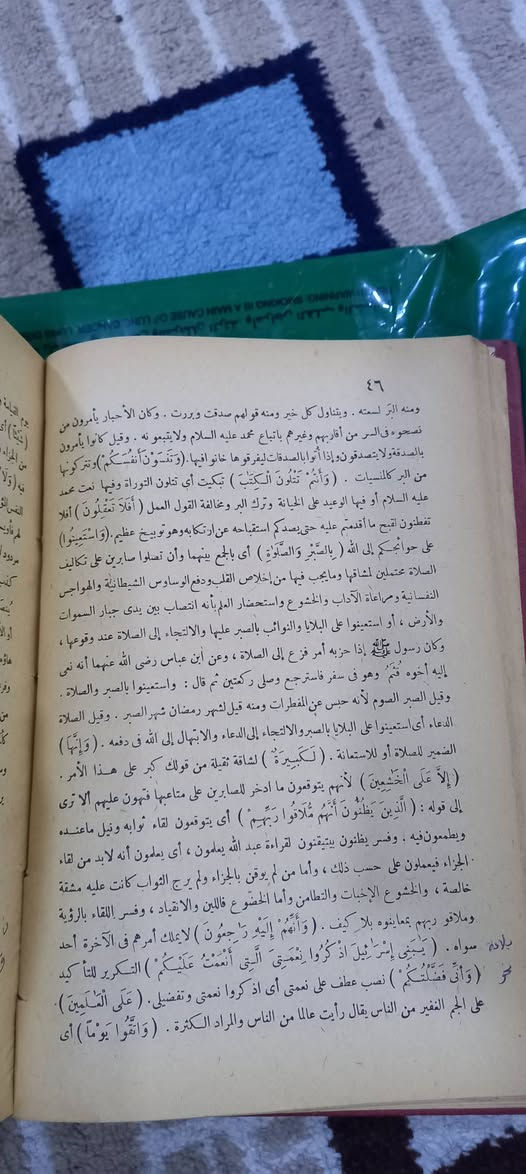 WARNING: SMOKING IS A MAIN CAUSE OF LUNG CANCER, LUNG
٤٦
ومنه البر لسعته . ويتناول كل خير ومنه قولهم صدقت وبررت . وكان الأحبار يأمرون من
نصحوه فى السر من أقاربهم وغيرهم باتباع محمد عليه السلام ولا يتبعونه . وقيل كانوا يأمرون
بالصدقة ولا يتصدقون وإذا أتوا بالصدقات ليفرقوها خانوا فيها. (وَتَنْسَوْنَ أَنْفُسَكُمْ) وتتركونها
من البر كالمنسيات . (وَأَنْتُمْ تَتْلُونَ الْكِتَٰبَ) تبكيت أى تتلون التوراة وفيها نعت محمد
عليه السلام أو فيها الوعيد على الخيانة وترك البر ومخالفة القول العمل (أَفَلَا تَعْقِلُونَ) أفلا
تفطنون لقبح ما أقدمتم عليه حتى يصدكم استقباحه عن ارتكابه وهو توبيخ عظيم. (وَاسْتَعِينُوا)
على حوائجكم إلى الله (بِالصَّبْرِ وَالصَّلَوٰةِ) أى بالجمع بينهما وأن تصلوا صابرين على تكاليف
الصلاة محتملين لمشاقها وما يجب فيها من إخلاص القلب ودفع الوساوس الشيطانية والهواجس
النفسانية ومراعاة الآداب والخشوع واستحضار العلم بأنه انتصاب بين يدى جبار السموات
والأرض ، أو استعينوا على البلايا والنوائب بالصبر عليها والالتجاء إلى الصلاة عند وقوعها ،
وكان رسول ﷺ إذا حزبه أمر فزع إلى الصلاة ، وعن ابن عباس رضى الله عنهما أنه نعى
إليه أخوه قثم وهو فى سفر فاسترجع وصلى ركعتين ثم قال : واستعينوا بالصبر والصلاة .
وقيل الصبر الصوم لأنه حبس عن المفطرات ومنه قيل لشهر رمضان شهر الصبر . وقيل الصلاة
الدعاء أى استعينوا على البلايا بالصبر والالتجاء إلى الدعاء والابتهال إلى الله فى دفعه . (وَإِنَّهَا)
الضمير للصلاة أو للاستعانة . (لَكَبِيرَةٌ) لشاقة ثقيلة من قولك كبر على هذا الأمر .
(إِلَّا عَلَى الْخَٰشِعِينَ) لأنهم يتوقعون ما ادخر للصابرين على متاعبها فتهون عليهم ألا ترى
إلى قوله : (الَّذِينَ يَظُنُّونَ أَنَّهُم مُّلَٰقُوا رَبِّهِمْ) أى يتوقعون لقاء ثوابه ونيل ما عنده
ويطمعون فيه . وفسر يظنون بيتيقنون لقراءة عبد الله يعلمون ، أى يعلمون أنه لابد من لقاء
الجزاء فيعملون على حسب ذلك ، وأما من لم يوقن بالجزاء ولم يرج الثواب كانت عليه مشقة
خالصة ، والخشوع الإخبات والتطامن وأما الخضوع فاللين والانقياد ، وفسر اللقاء بالرؤية
وملاقو ربهم بمعاينوه بلا كيف . (وَأَنَّهُمْ إِلَيْهِ رَٰجِعُونَ) لا يملك أمرهم فى الآخرة أحد
سواه . (يَٰبَنِى إِسْرَٰئِيلَ اذْكُرُوا نِعْمَتِىَ الَّتِى أَنْعَمْتُ عَلَيْكُمْ) التكرير للتأكيد
(وَأَنِّى فَضَّلْتُكُمْ) نصب عطف على نعمتى أى اذكروا نعمتى وتفضيلى. (عَلَى الْعَٰلَمِينَ)
على الجم الغفير من الناس يقال رأيت عالما من الناس والمراد الكثرة . (وَاتَّقُوا يَوْمًا) أى